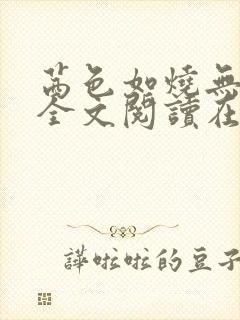 茜色如燒無
全文閱讀在
譁啦啦的豆子